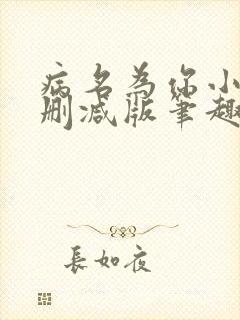 病名为你小
删减版笔趣
長如夜